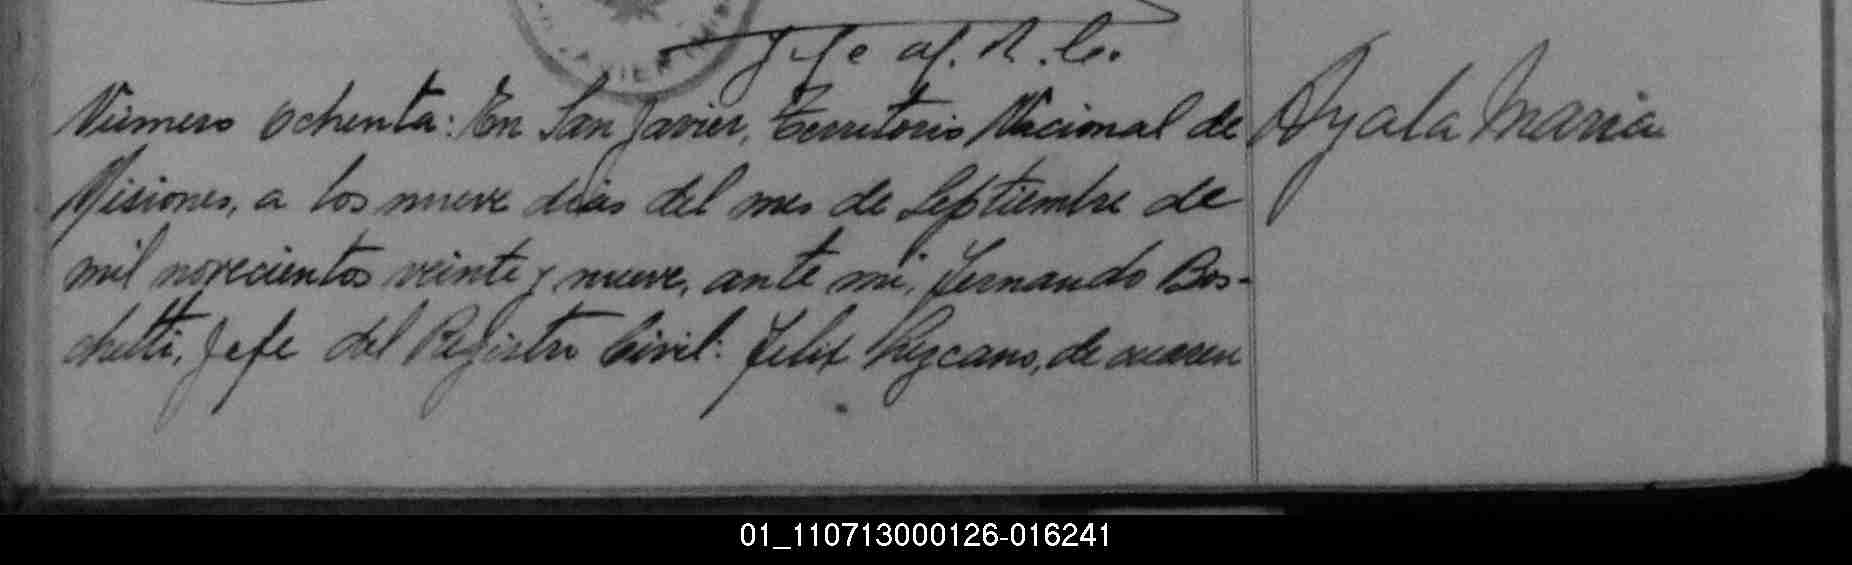 Jefe del R. C.
Número Ochenta: En San Javier, Territorio Nacional de
Ayala Maria
Misiones, a los nueve dias del mes de Septiembre de
mil novecientos veinte y nueve, ante mi, Fernando Bos-
chetti, Jefe del Registro Civil: Felix Lezcano, de cuaren
01_110713000126-016241